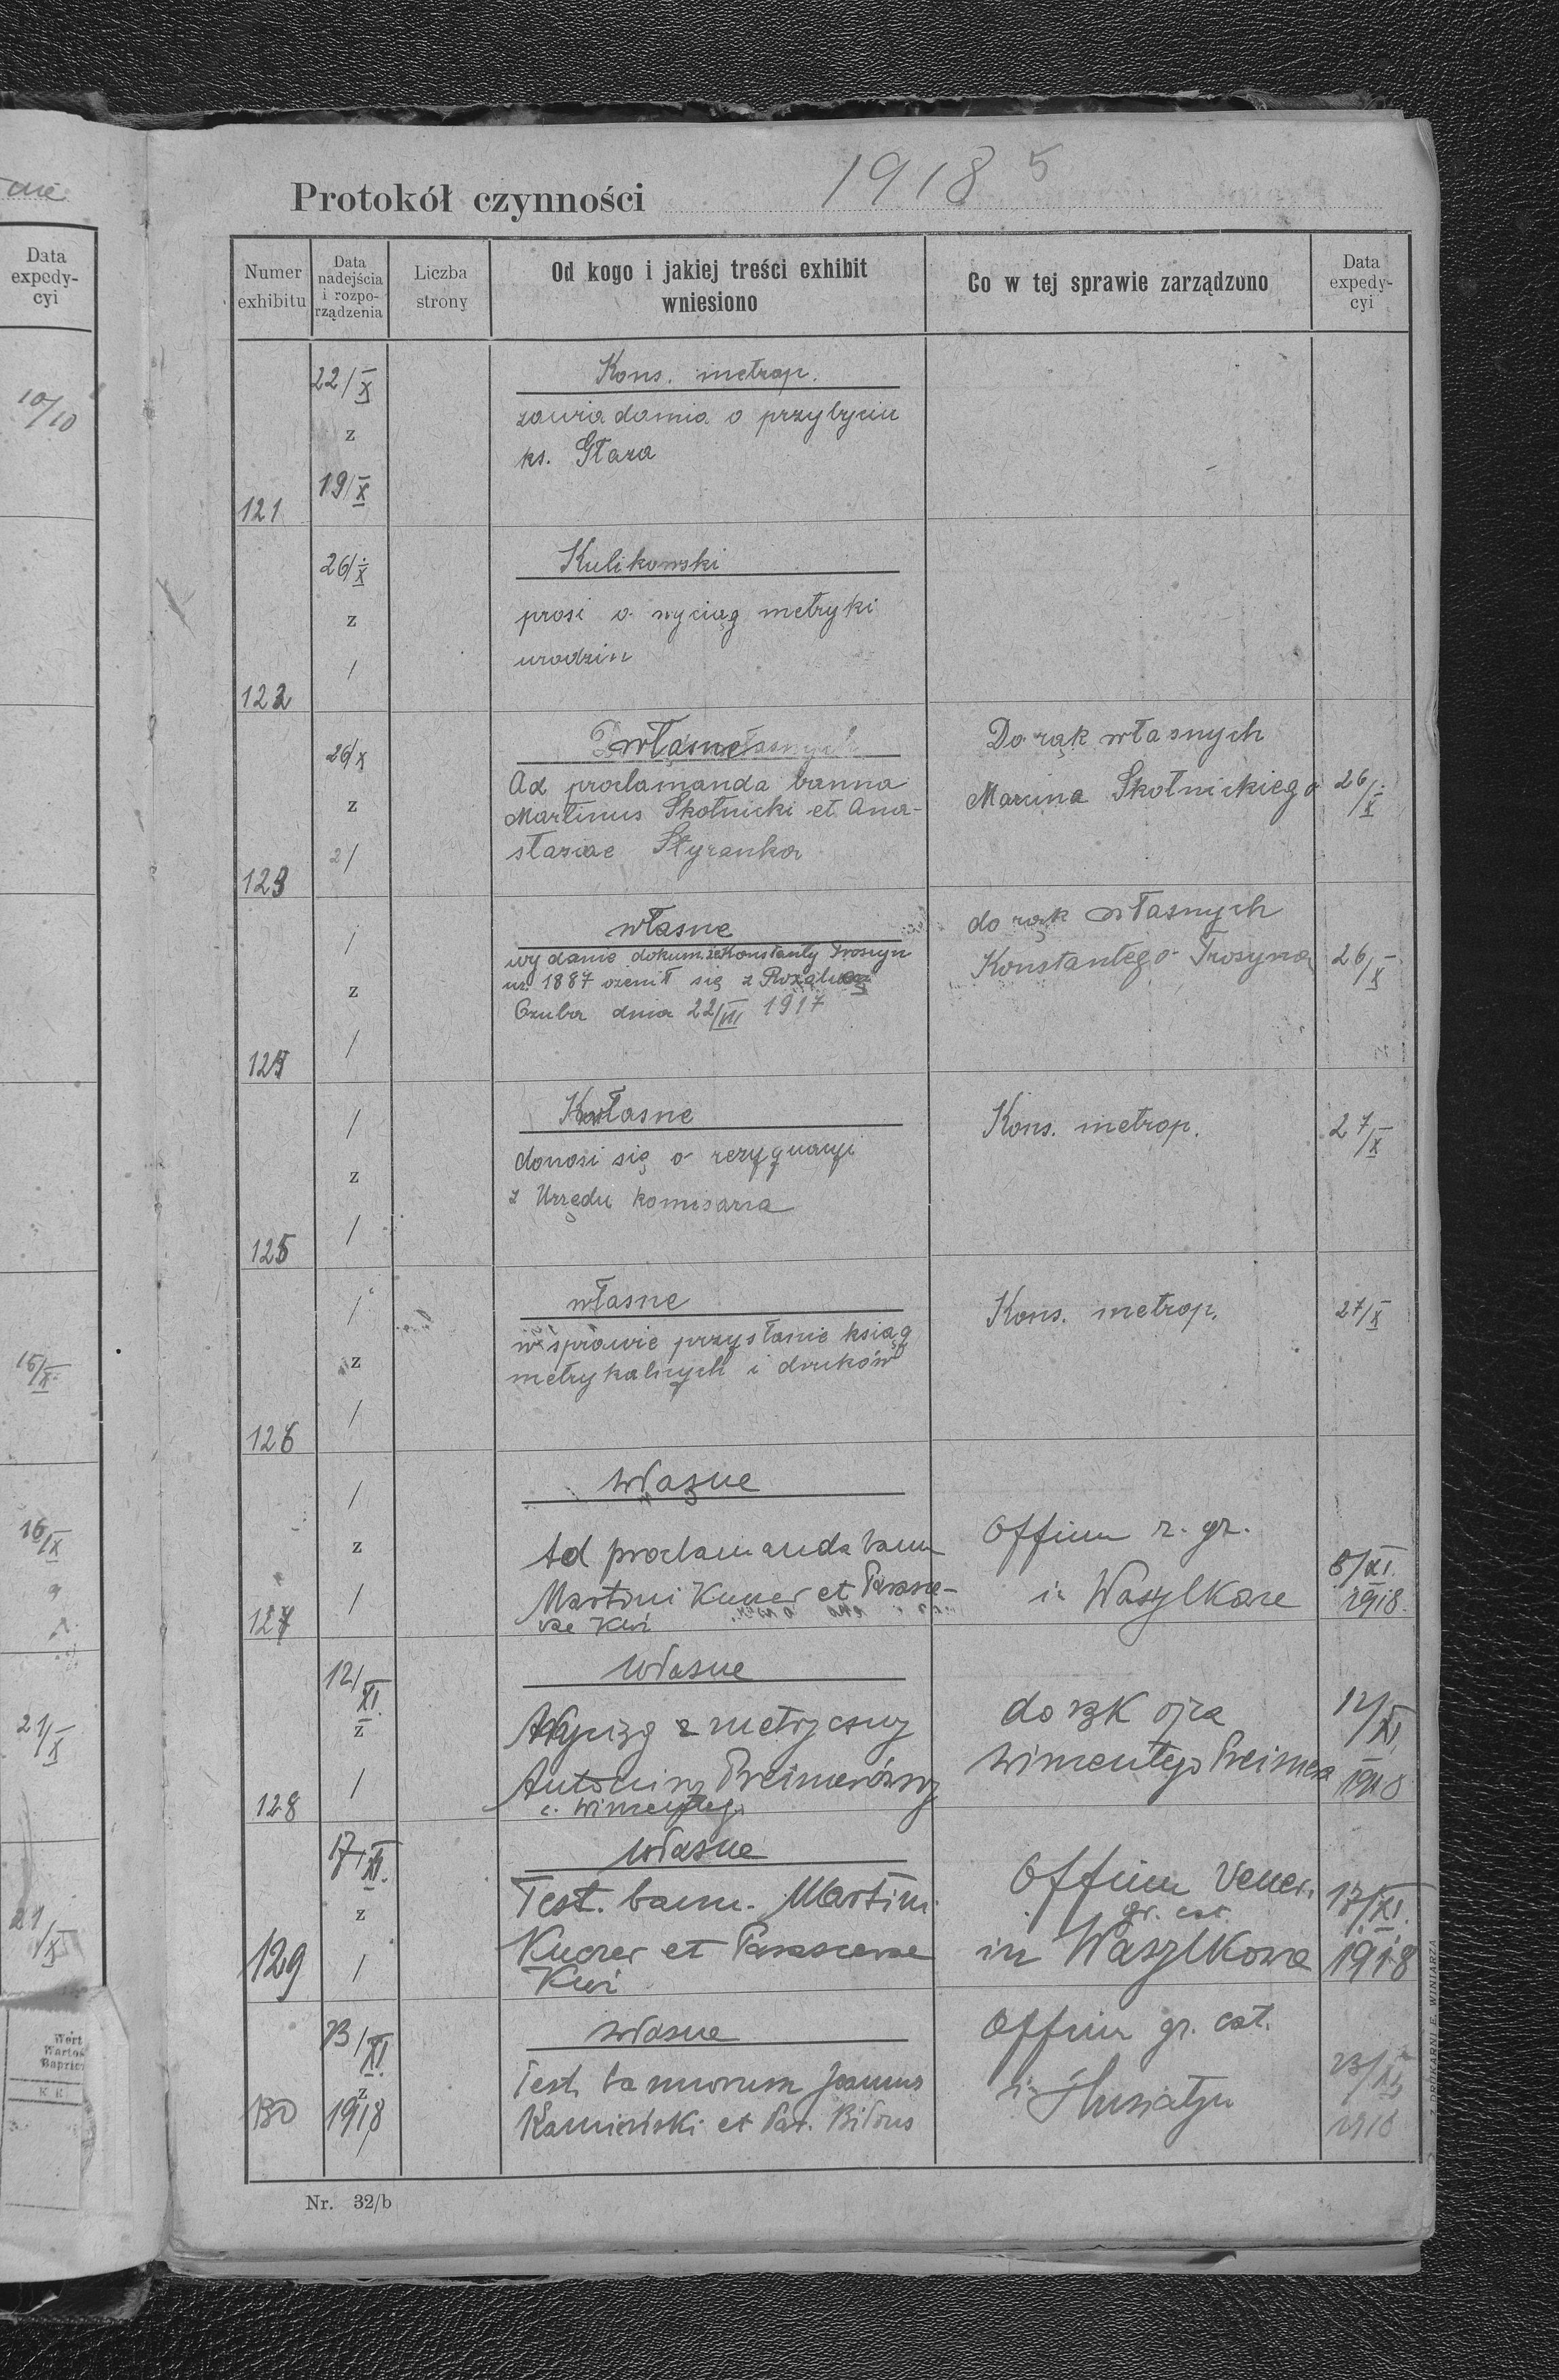 1918 5
Protokół czynności
Numer exhibitu
Data nadejścia i rozporządzenia
Liczba strony
Od kogo i jakiej treści exhibit wniesiono
Co w tej sprawie zarządzono
Data expedycyi
Data
expedy-
cyi
10/10
15/X
16/X
21/X
21/X
121
22/X
z
19/X
Kons. metrop.
zawiadamia o przybyciu
ks. Głaza
122
26/X
z
/
Kulikowski
prosi o wyciąg metryki
urodzin
123
26/X
z
/
własne
Ad proclamanda banna
Martinus Skotnicki et Ana-
stasiae Styranka
Do rąk własnych
Marcina Skotnickiego
26/X
124
/
z
/
własne
wydanie dokum. że Konstanty Trosyn
ur. 1887 ożenił się z Rozalią
Czuba dnia 22/VII 1917
do rąk własnych
Konstantego Trosyna
26/X
125
/
z
/
własne
donosi się o rezygnacyi
z Urzędu komisarza
Kons. metrop.
27/X
126
/
z
/
własne
w sprawie przysłanie ksiąg
metrykalnych i druków
Kons. metrop.
27/X
127
/
z
/
własne
Ad proclamanda bann
Martini Kuczer et Parasce-
vae Kwi
Officium r. gr.
in Wasylkowce
6/XI.
1918.
128
12/XI.
z
/
własne
Wyciąg z metryczny
Antoniny Preisnerówny
c. Wincentego
do rąk ojca
Wincentego Preisnera
12/XI.
1918
129
17/XI.
z
/
własne
Test. bann. Martini
Kuczer et Parascevae
Kwi
Officium Vener.
gr. cat.
in Wasylkowce
17/XI.
1918
130
23/XI.
z
1918
własne
Test. bannorum Joannis
Kamiński et Par. Bilous
Officium gr. cat.
in Husiatyn
23/XI.
1918
Nr. 32/b
Z DRUKARNI E. WINIARZA